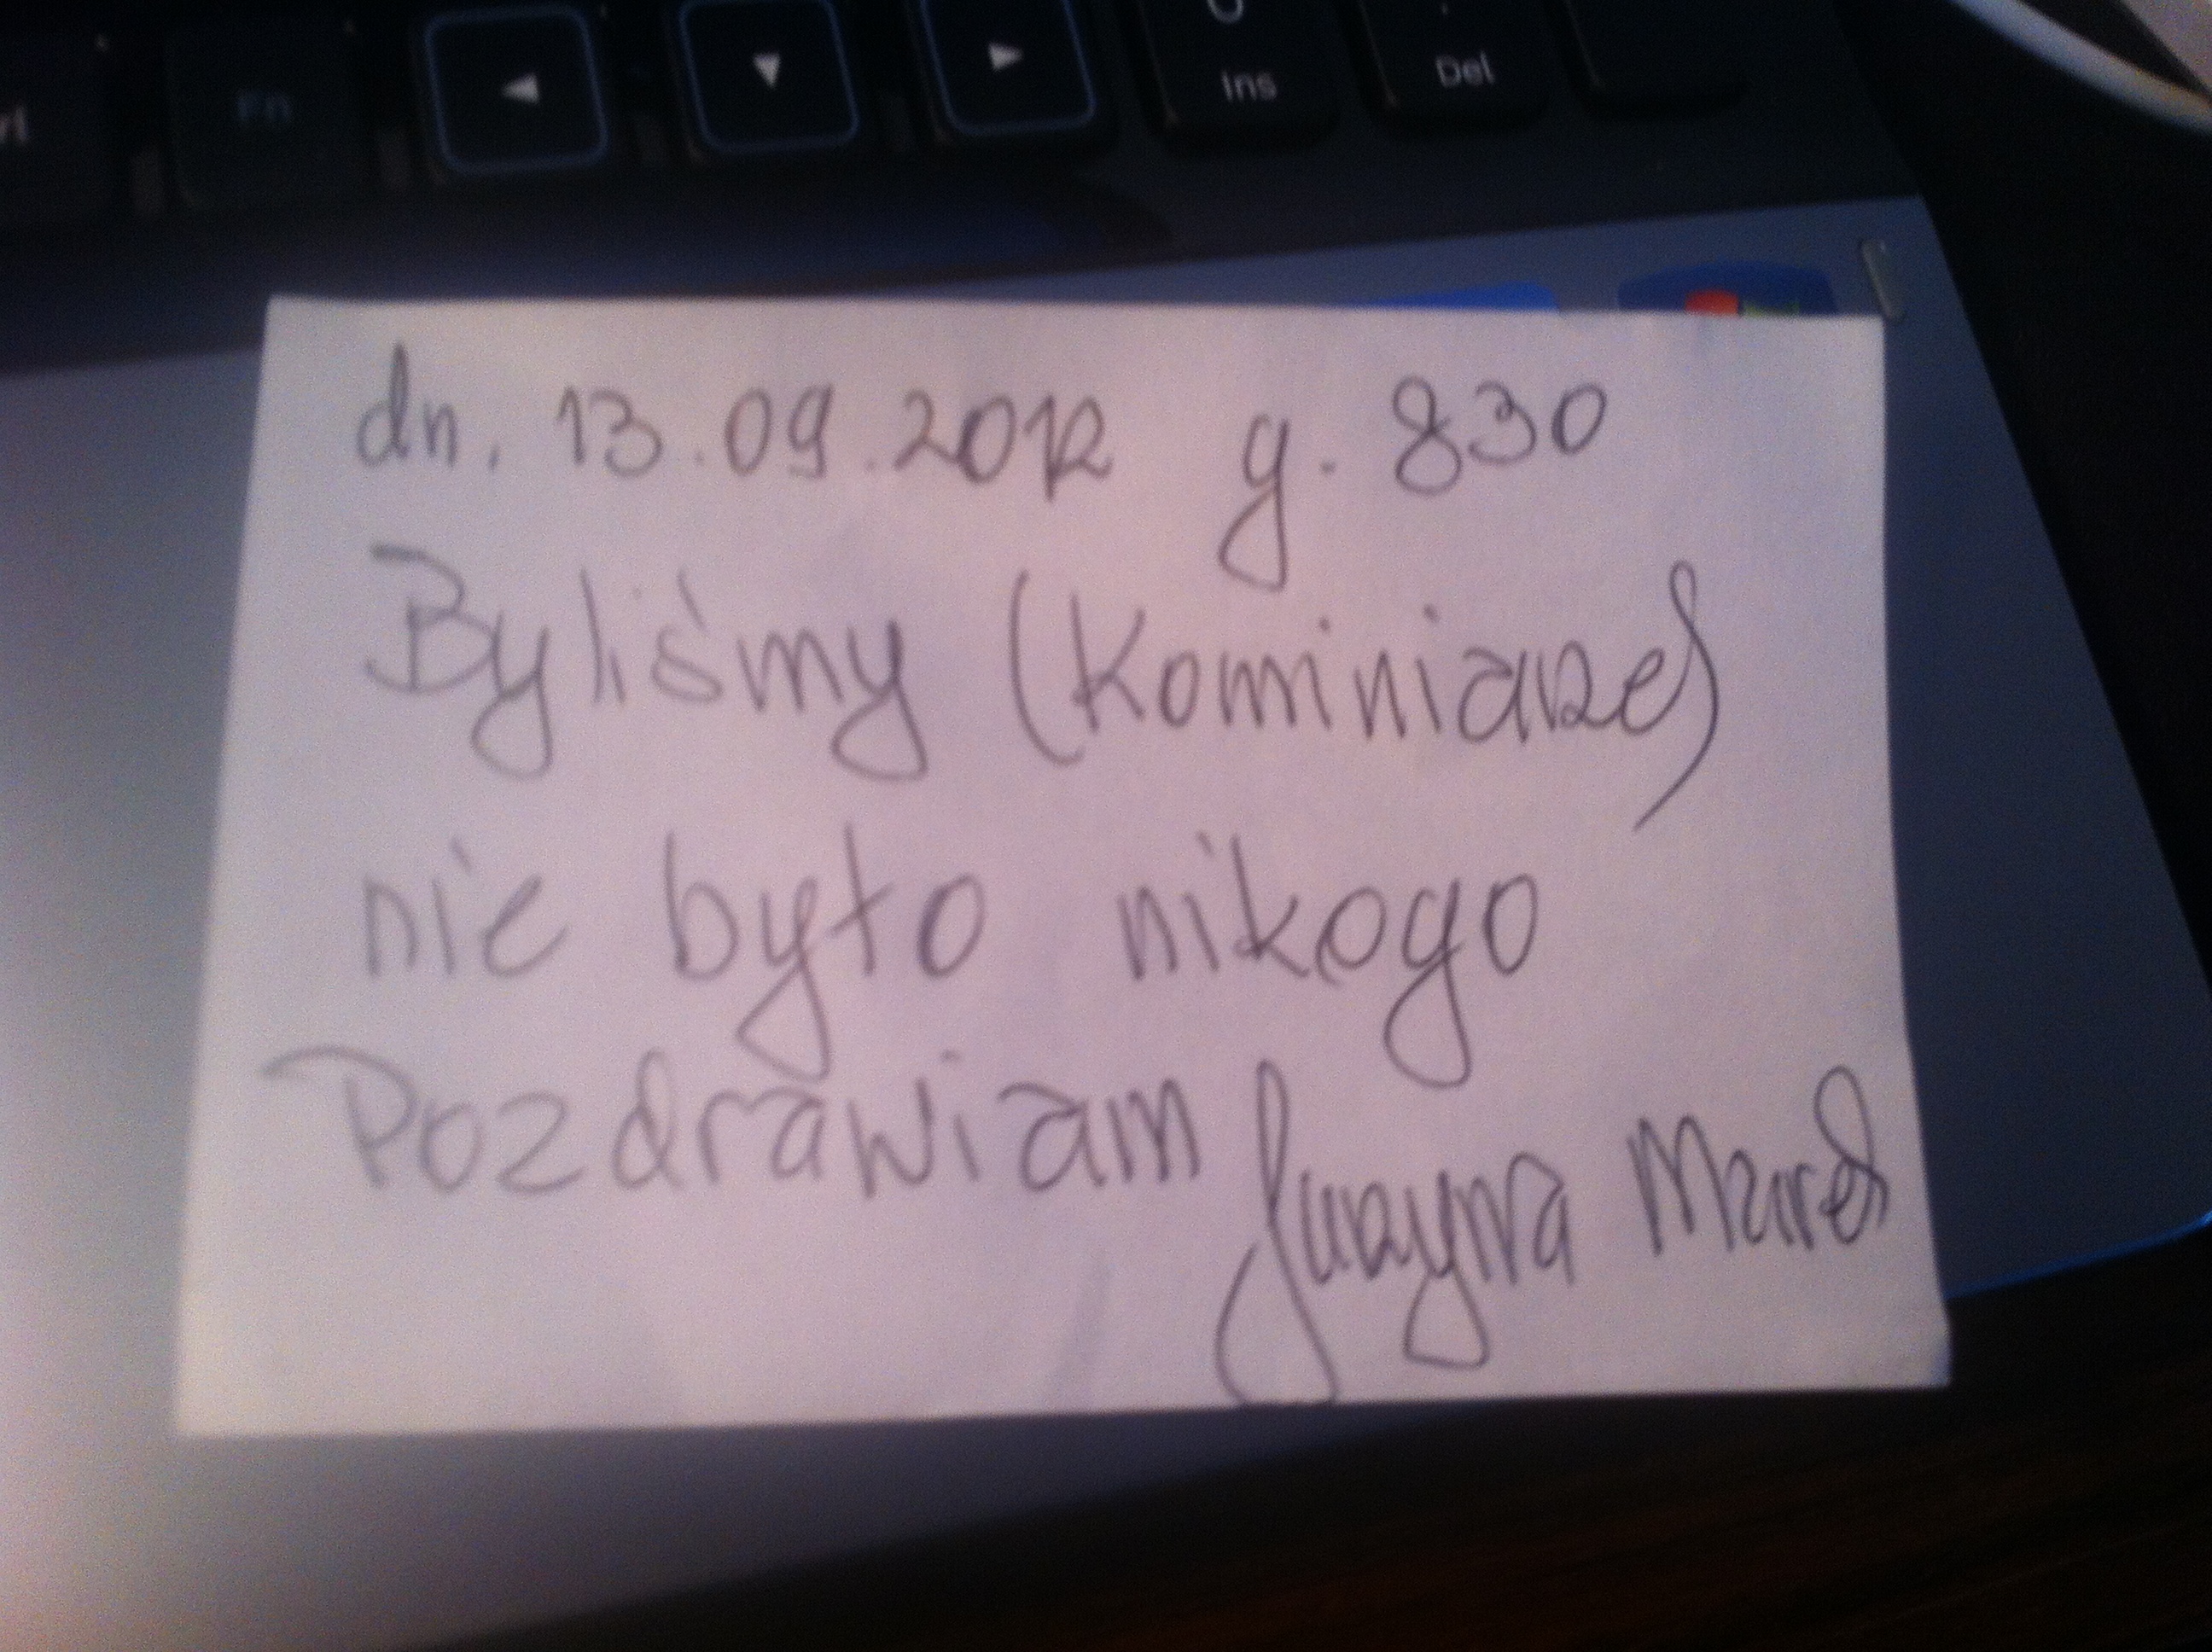 Fn
Ins
Del
dn. 13.09.2012 g. 830
Byliśmy (Kominiarze)
nie było nikogo
Pozdrawiam